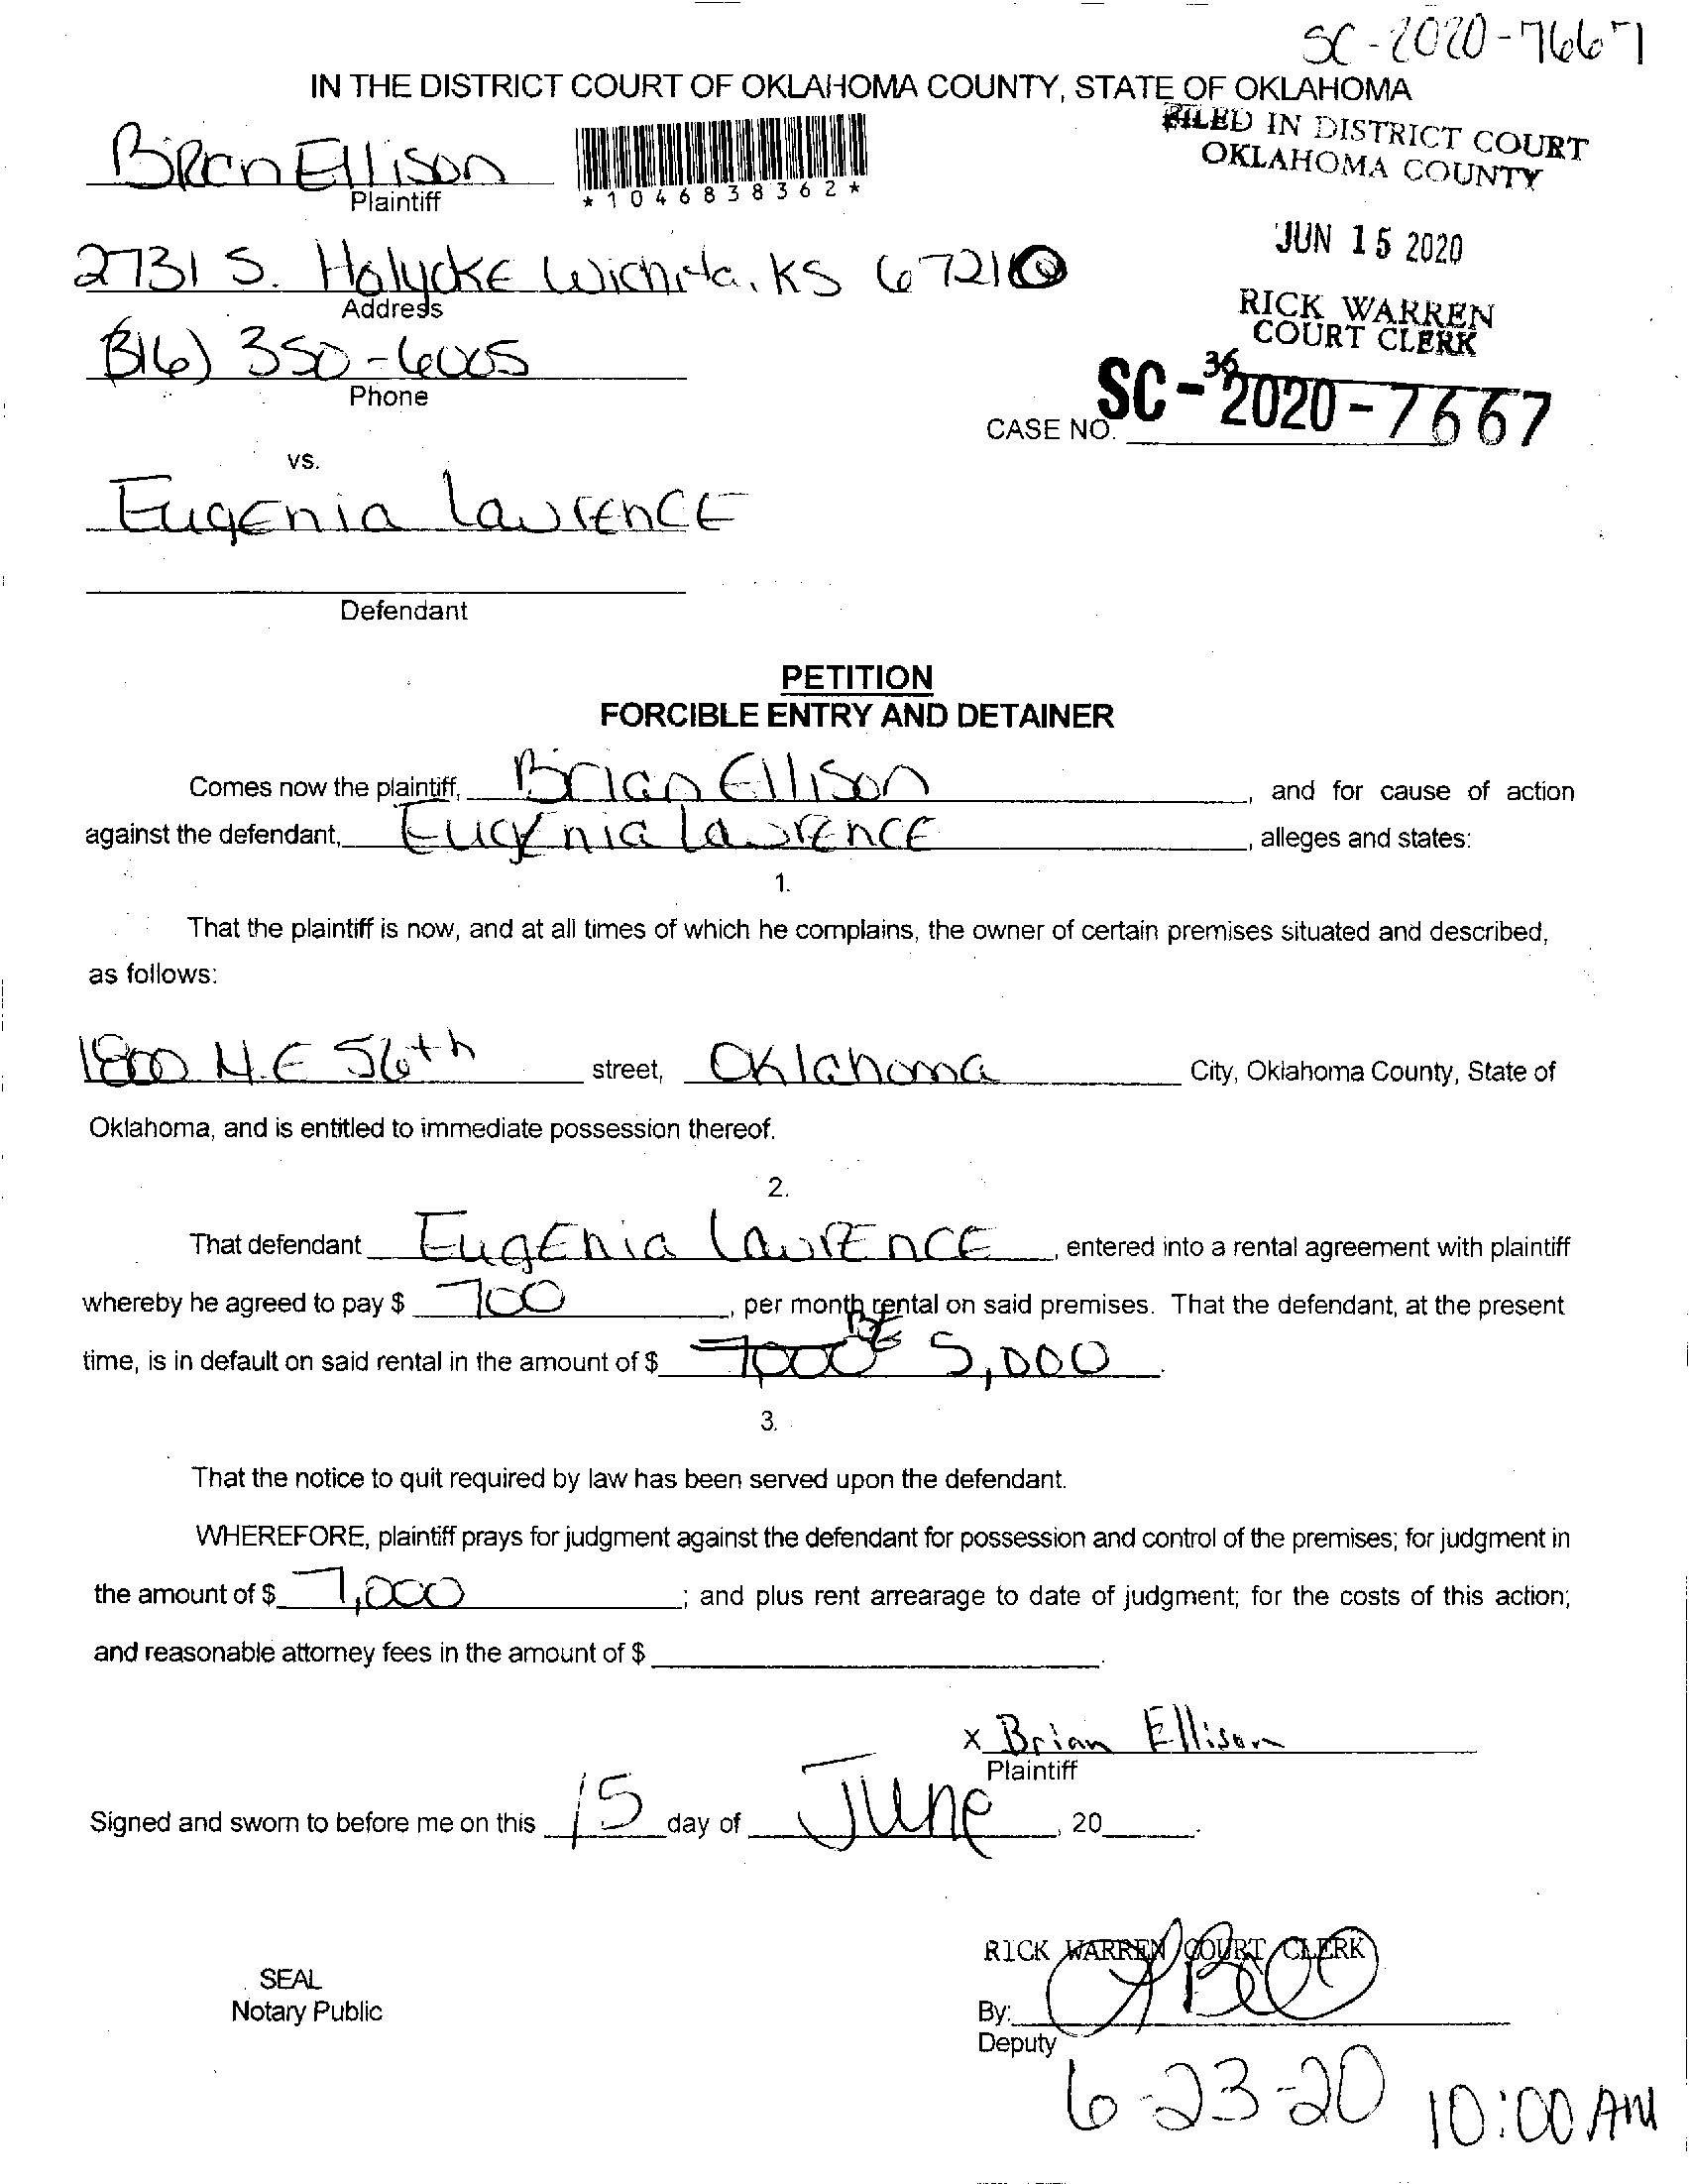 SC-2020-7667
IN THE DISTRICT COURT OF OKLAHOMA COUNTY, STATE OF OKLAHOMA
FILED IN DISTRICT COURT
OKLAHOMA COUNTY
Brian Ellison
Plaintiff
*1046838362*
JUN 15 2020
2731 S. Holyoke Wichita, KS 67210
Address
RICK WARREN
COURT CLERK
(316) 350-6005
Phone
36
CASE NO. SC-2020-7667
vs.
EugEnia LawrencE
Defendant
PETITION
FORCIBLE ENTRY AND DETAINER
Comes now the plaintiff, Brian Ellison, and for cause of action
against the defendant, EugEnia LawrEncE, alleges and states:
1.
That the plaintiff is now, and at all times of which he complains, the owner of certain premises situated and described,
as follows:
1800 N.E 56th street, Oklahoma City, Oklahoma County, State of
Oklahoma, and is entitled to immediate possession thereof.
2.
That defendant EugEnia LawrEncE, entered into a rental agreement with plaintiff
whereby he agreed to pay $ 700, per month rental on said premises. That the defendant, at the present
time, is in default on said rental in the amount of $ 7000 BE 5,000.
3.
That the notice to quit required by law has been served upon the defendant.
WHEREFORE, plaintiff prays for judgment against the defendant for possession and control of the premises; for judgment in
the amount of $ 7,000; and plus rent arrearage to date of judgment; for the costs of this action;
and reasonable attorney fees in the amount of $ .
x Brian Ellison
Plaintiff
Signed and sworn to before me on this 15 day of June, 20 .
RICK WARREN COURT CLERK
SEAL
Notary Public
By:
Deputy
6-23-20 10:00 AM